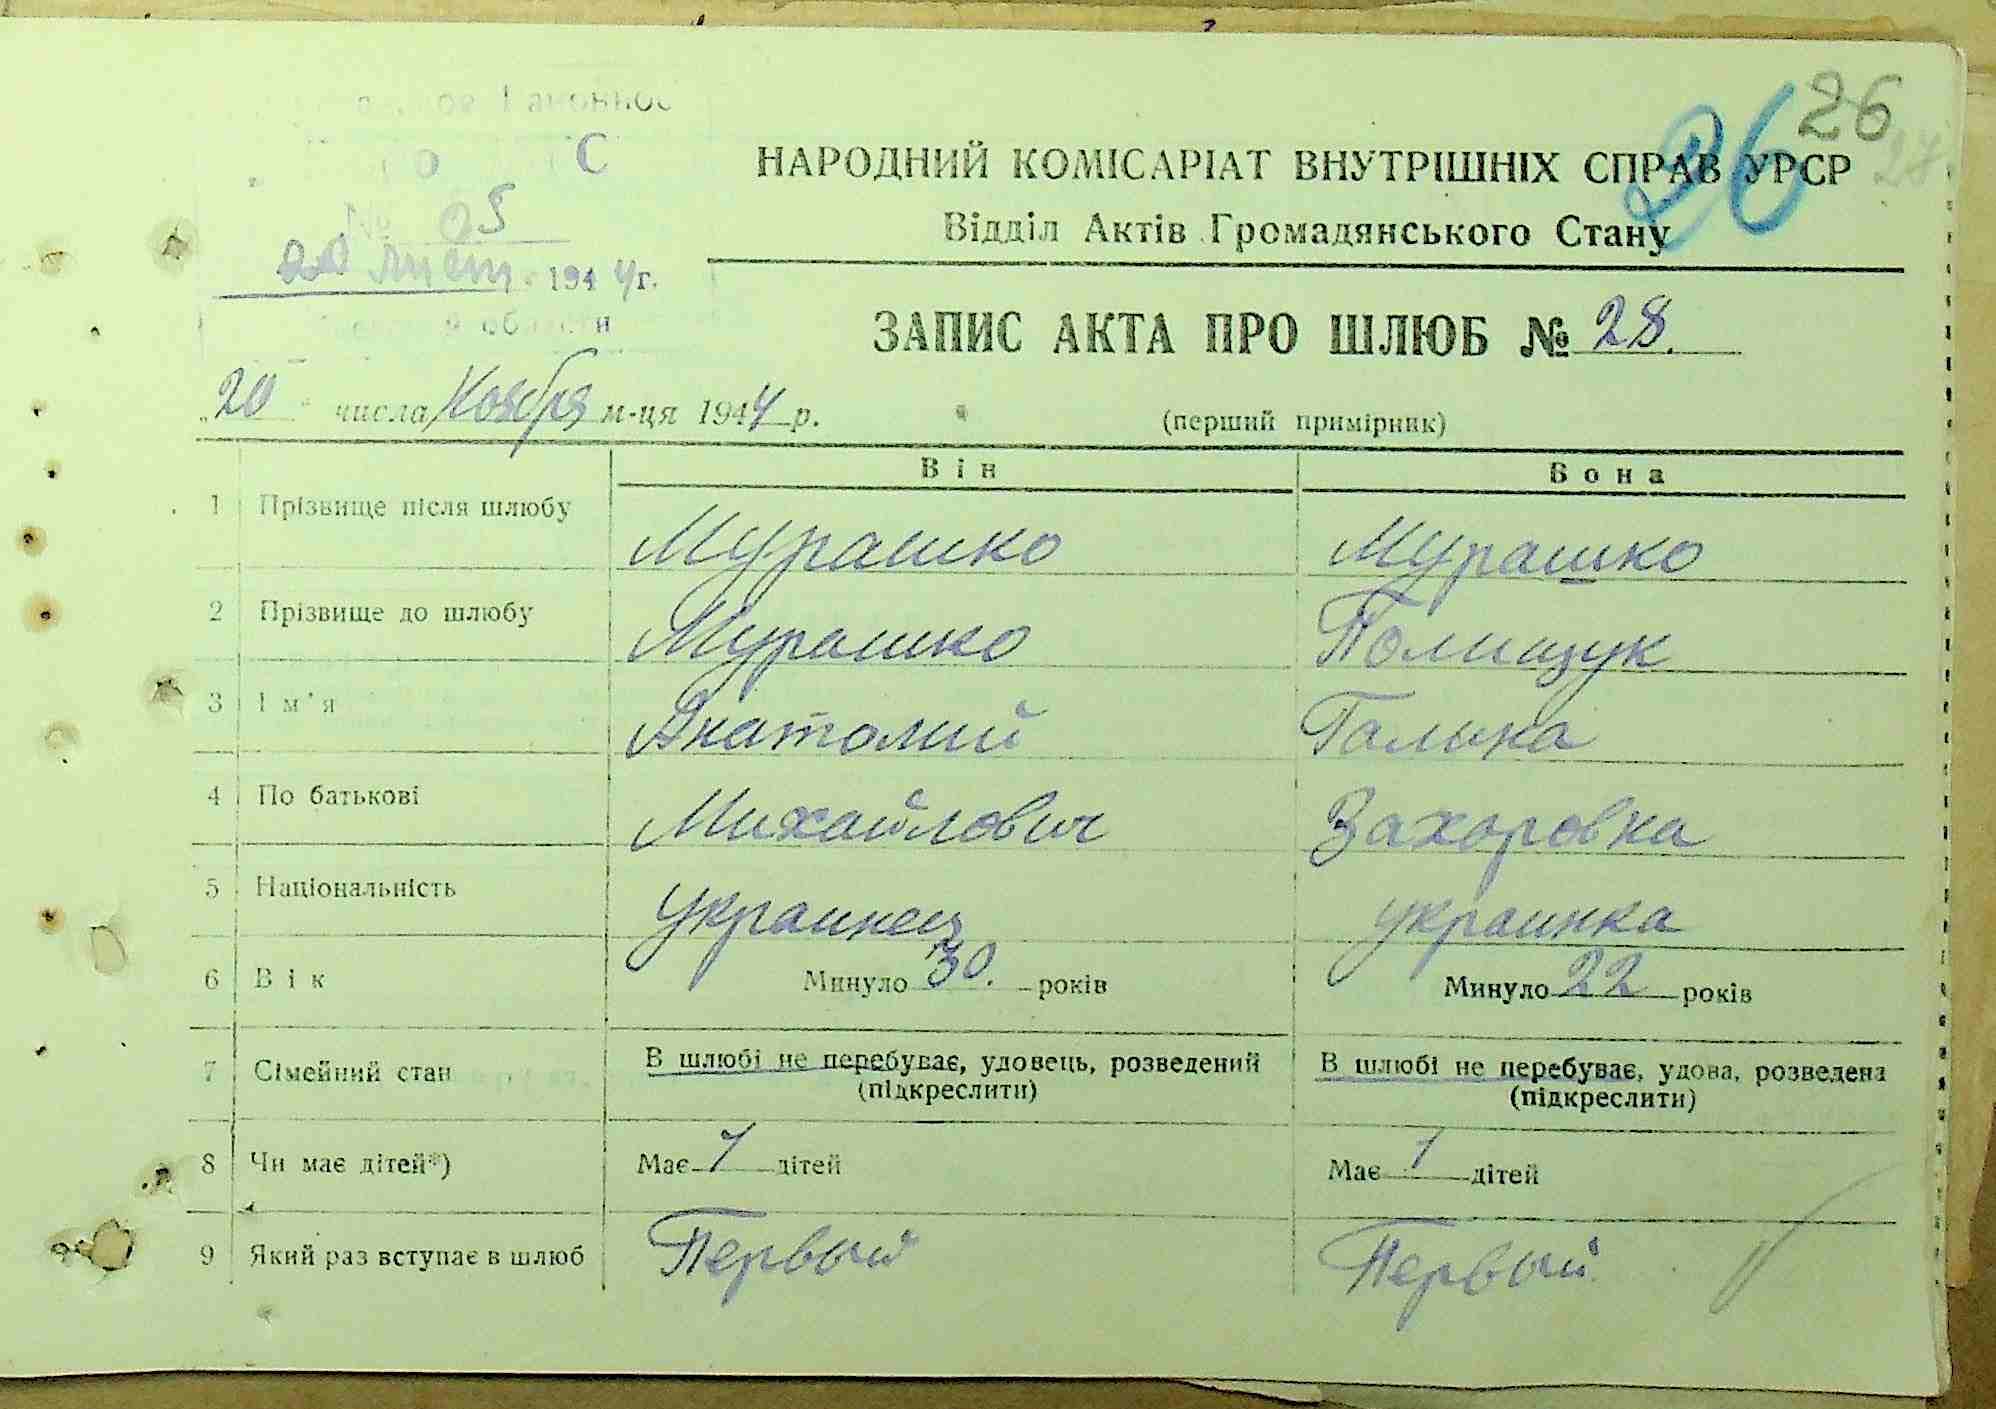 26
26
НАРОДНИЙ КОМІСАРІАТ ВНУТРІШНІХ СПРАВ УРСР
Відділ Актів Громадянського Стану
С
№
20 лист 1944г.
области
ЗАПИС АКТА ПРО ШЛЮБ № 28.
„20" числа Ноября м-ця 1944 р.
(перший примірник)
Він Вона
1 Прізвище після шлюбу Мурашко Мурашко
2 Прізвище до шлюбу Мурашко Полищук
3 Ім'я Анатолий Галина
4 По батькові Михайлович Захоровна
5 Національність украинец украинка
6 Вік Минуло 30. років Минуло 22 років
7 Сімейний стан В шлюбі не перебуває, удовець, розведений В шлюбі не перебуває, удова, розведена
(підкреслити) (підкреслити)
8 Чи має дітей*) Має 1 дітей Має 1 дітей
9 Який раз вступає в шлюб Первый Первый